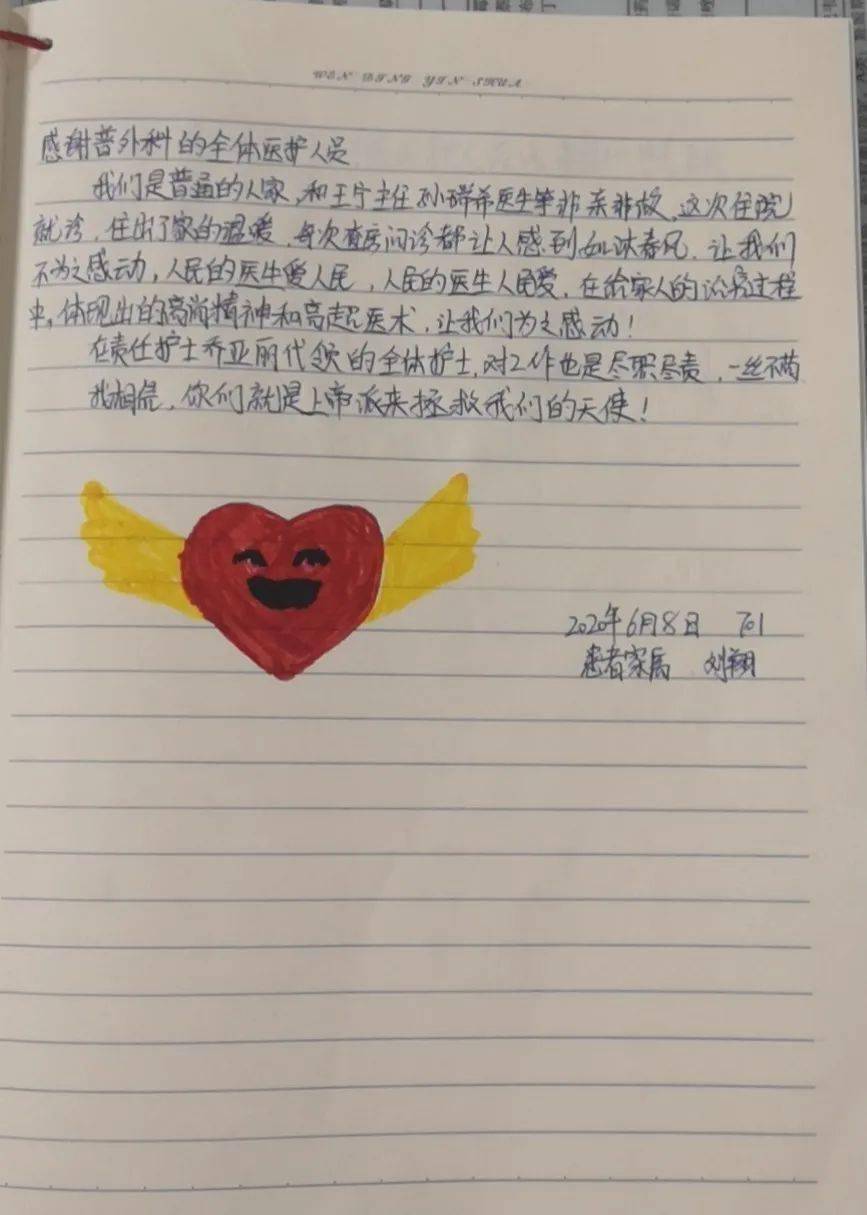 WEN DING YIN SHUA
感谢普外科的全体医护人员
我们是普通的人家,和王宁主任孙瑞希医生等非亲非故,这次住院
就诊,住出了家的温暖,每次查房问诊都让人感到如沐春风,让我们
不为之感动,人民的医生爱人民,人民的医生人民爱,在给家人的治疗过程
中,体现出的高尚精神和高超医术,让我们为之感动!
在责任护士乔亚丽代领的全体护士,对工作也是尽职尽责,一丝不苟
我相信,你们就是上帝派来拯救我们的天使!
2020年6月8日 701
患者家属 刘翔